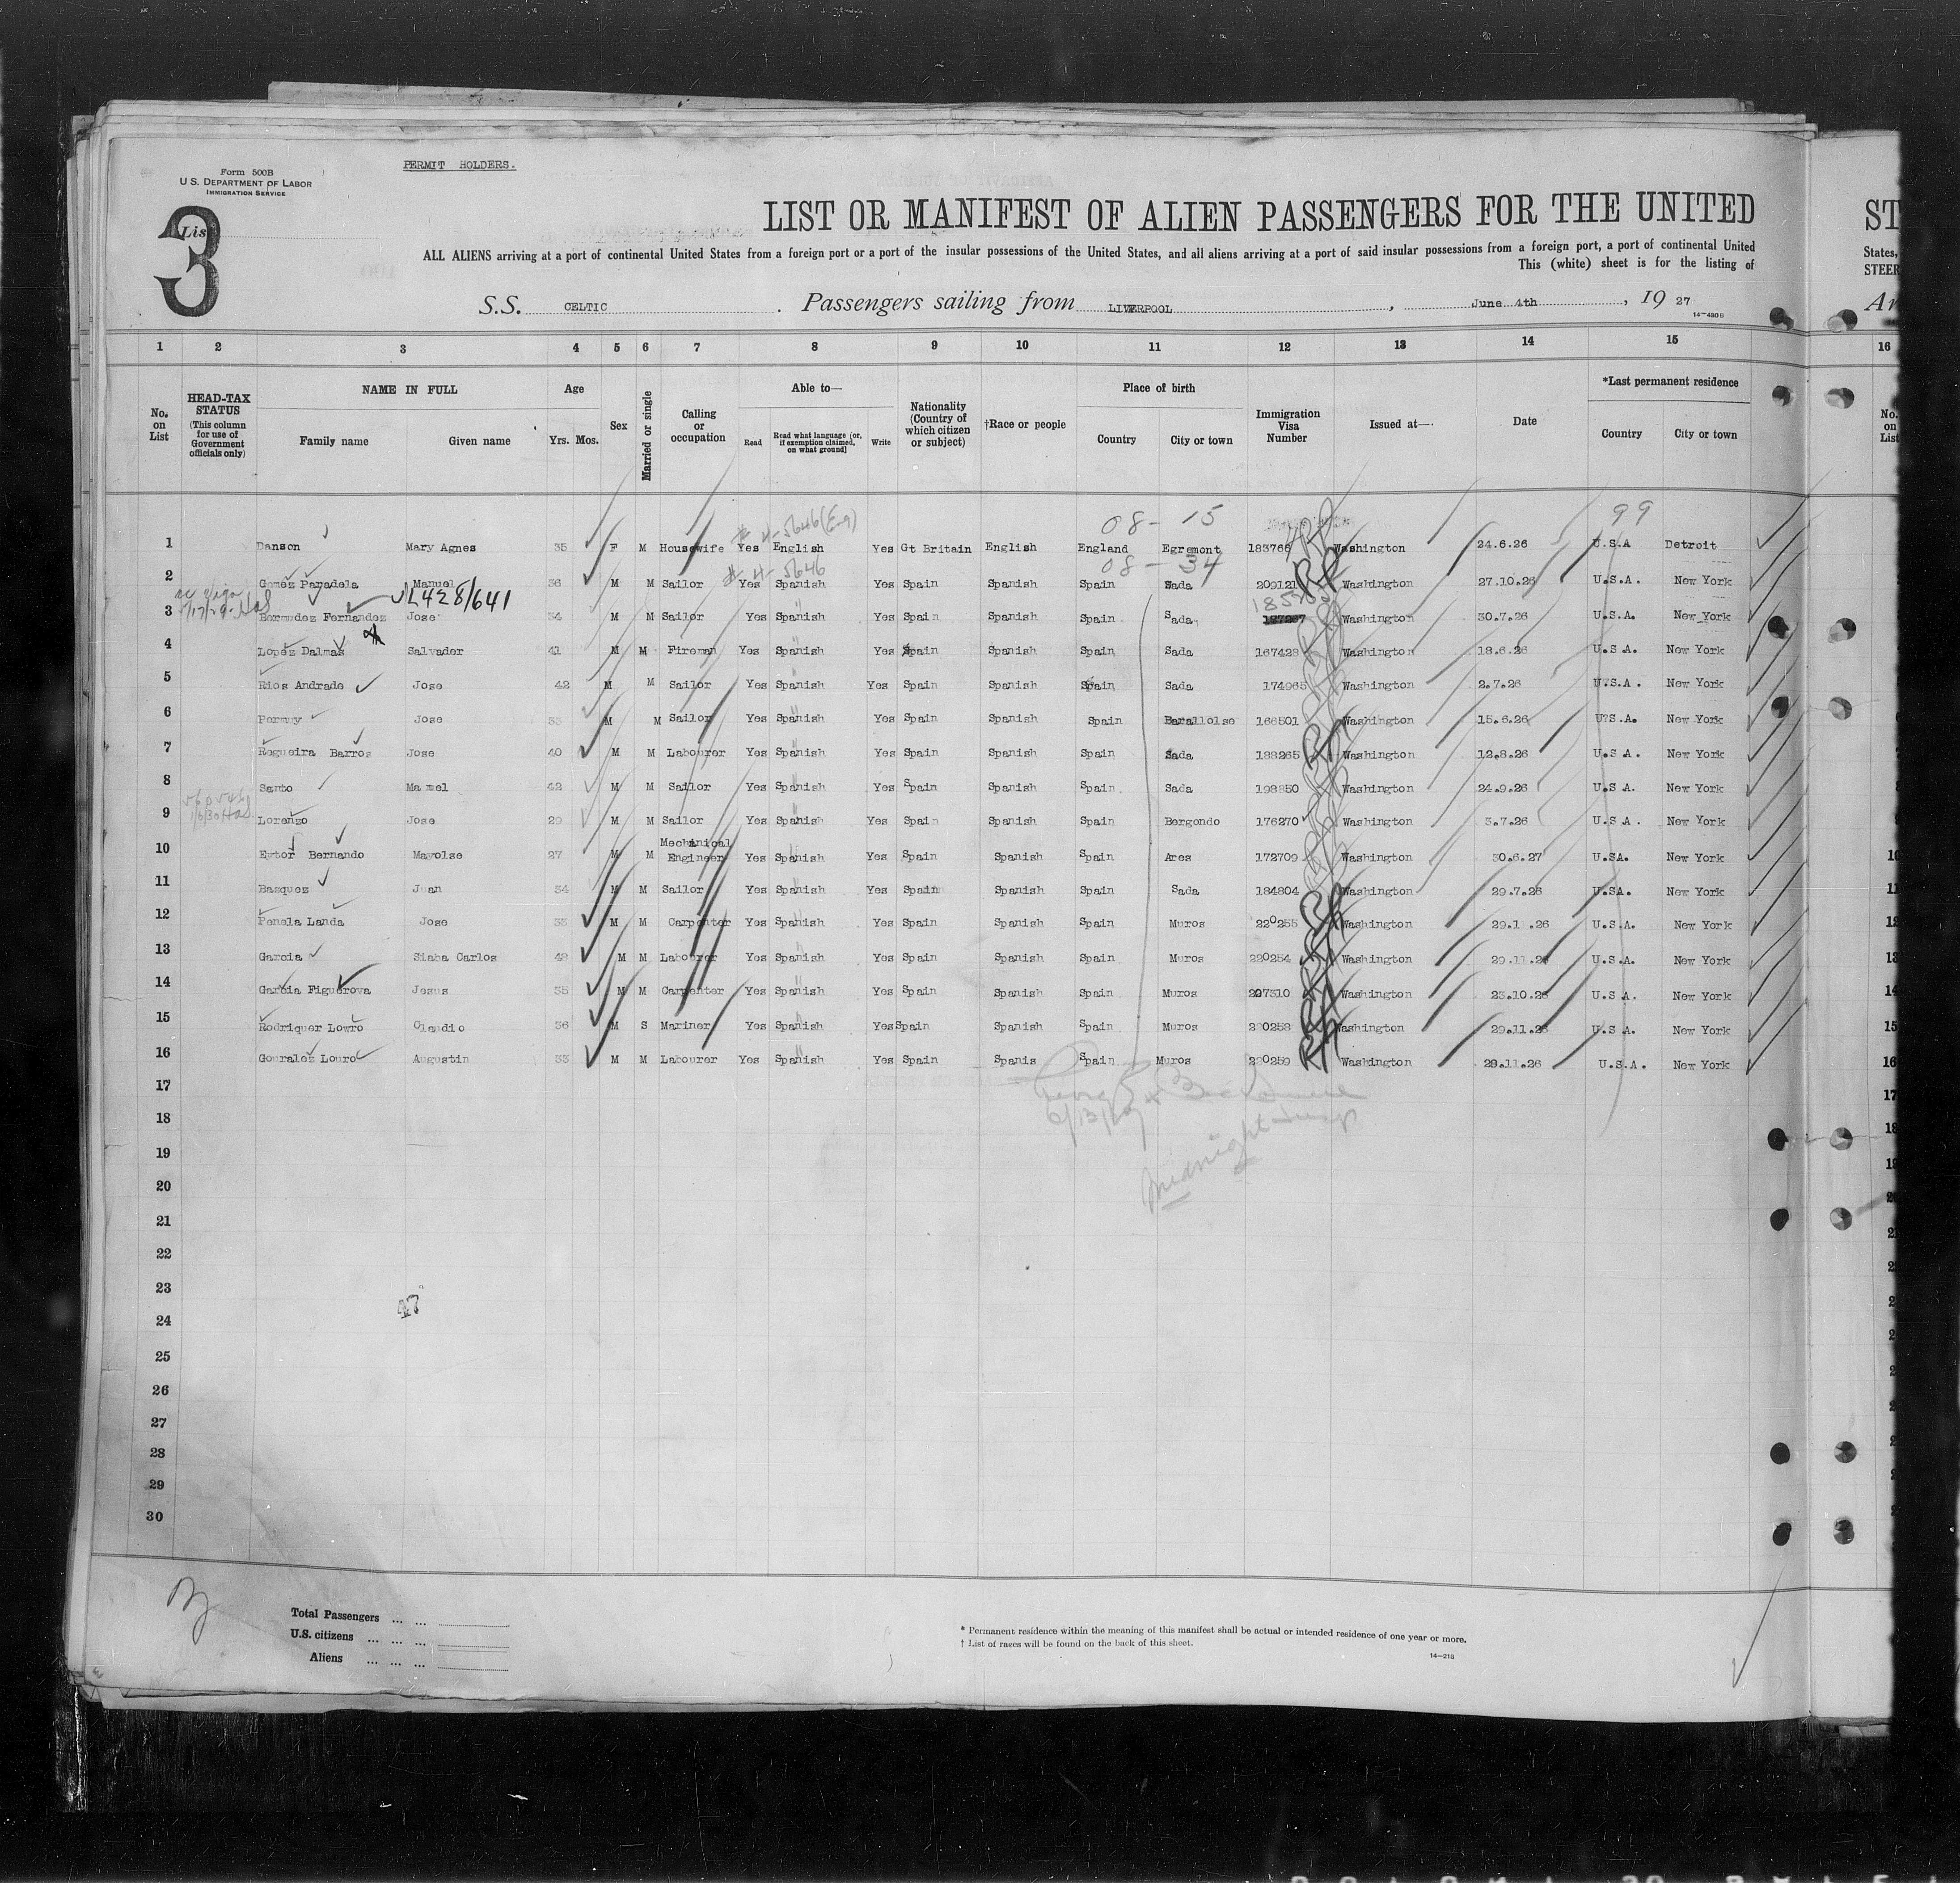 PERMIT HOLDERS.
Form 500B
U.S. DEPARTMENT OF LABOR
IMMIGRATION SERVICE
List
3
LIST OR MANIFEST OF ALIEN PASSENGERS FOR THE UNITED
ST
ALL ALIENS arriving at a port of continental United States from a foreign port or a port of the insular possessions of the United States, and all aliens arriving at a port of said insular possessions from a foreign port, a port of continental United
States,
This (white) sheet is for the listing of
STEER
S.S. CELTIC . Passengers sailing from LIVERPOOL , June 4th , 19 27
Ar
14-430B
1 2 3 4 5 6 7 8 9 10 11 12 13 14 15 16
No. on List
HEAD-TAX STATUS (This column for use of Government officials only)
NAME IN FULL
Family name Given name
Age
Yrs. Mos.
Sex
Married or single
Calling or occupation
Able to—
Read
Read what language (or, if exemption claimed, on what ground)
Write
Nationality (Country of which citizen or subject)
†Race or people
Place of birth
Country City or town
Immigration Visa Number
Issued at—
Date
*Last permanent residence
Country City or town
No. on List
# 4-5646 (E-9) 08 - 15 99
1 Danson Mary Agnes 35 F M Housewife Yes English Yes Gt Britain English England Egremont 183766 Washington 24.6.26 U.S.A Detroit
# 4-5646 08 - 34
2 Gomez Paradela Manuel 36 M M Sailor Yes Spanish Yes Spain Spanish Spain Sada 209121 Washington 27.10.26 U.S.A. New York
L428/641
3 Bermudez Fernandez Jose 34 M M Sailor Yes Spanish Yes Spain Spanish Spain Sada Washington 30.7.26 U.S.A. New York
4 Lopez Dalmas Salvador 41 M M Fireman Yes Spanish Yes Spain Spanish Spain Sada 167428 Washington 18.6.26 U.S.A. New York
5 Rios Andrade Jose 42 M M Sailor Yes Spanish Yes Spain Spanish Spain Sada 174965 Washington 2.7.26 U.S.A. New York
6 Permuy Jose 33 M M Sailor Yes Spanish Yes Spain Spanish Spain Barallolse 166501 Washington 15.6.26 U.S.A. New York
7 Rogueira Barros Jose 40 M M Labourer Yes Spanish Yes Spain Spanish Spain Sada 188265 Washington 12.8.26 U.S.A. New York
8 Santo Manuel 42 M M Sailor Yes Spanish Yes Spain Spanish Spain Sada 198850 Washington 24.9.26 U.S.A. New York
9 Lorenzo Jose 29 M M Sailor Yes Spanish Yes Spain Spanish Spain Bergondo 176270 Washington 3.7.26 U.S.A. New York
10 Eytor Bernando Mayolse 27 M M Mechanical Engineer Yes Spanish Yes Spain Spanish Spain Ares 172709 Washington 30.6.27 U.SA. New York
11 Basquez Juan 34 M M Sailor Yes Spanish Yes Spain Spanish Spain Sada 184804 Washington 29.7.26 U.SA. New York
12 Penela Landa Jose 33 M M Carpenter Yes Spanish Yes Spain Spanish Spain Muros 220255 Washington 29.1 .26 U.S.A. New York
13 Garcia Siaba Carlos 48 M M Labourer Yes Spanish Yes Spain Spanish Spain Muros 220254 Washington 29.11.26 U.S.A. New York
14 Garcia Figuerova Jesus 35 M M Carpenter Yes Spanish Yes Spain Spanish Spain Muros 207310 Washington 23.10.26 U.S.A. New York
15 Rodriquer Lowro Claudio 36 M S Mariner Yes Spanish Yes Spain Spanish Spain Muros 220258 Washington 29.11.26 U.S.A. New York
16 Gouralez Louro Augustin 33 M M Labourer Yes Spanish Yes Spain Spanis Spain Muros 220259 Washington 29.11.26 U.S.A. New York
17
18
19
20
21
22
23
24
25
26
27
28
29
30
Midnight Insp
47
Total Passengers ... ...
U.S. citizens ... ... ...
Aliens ... ... ...
* Permanent residence within the meaning of this manifest shall be actual or intended residence of one year or more.
† List of races will be found on the back of this sheet.
14-213